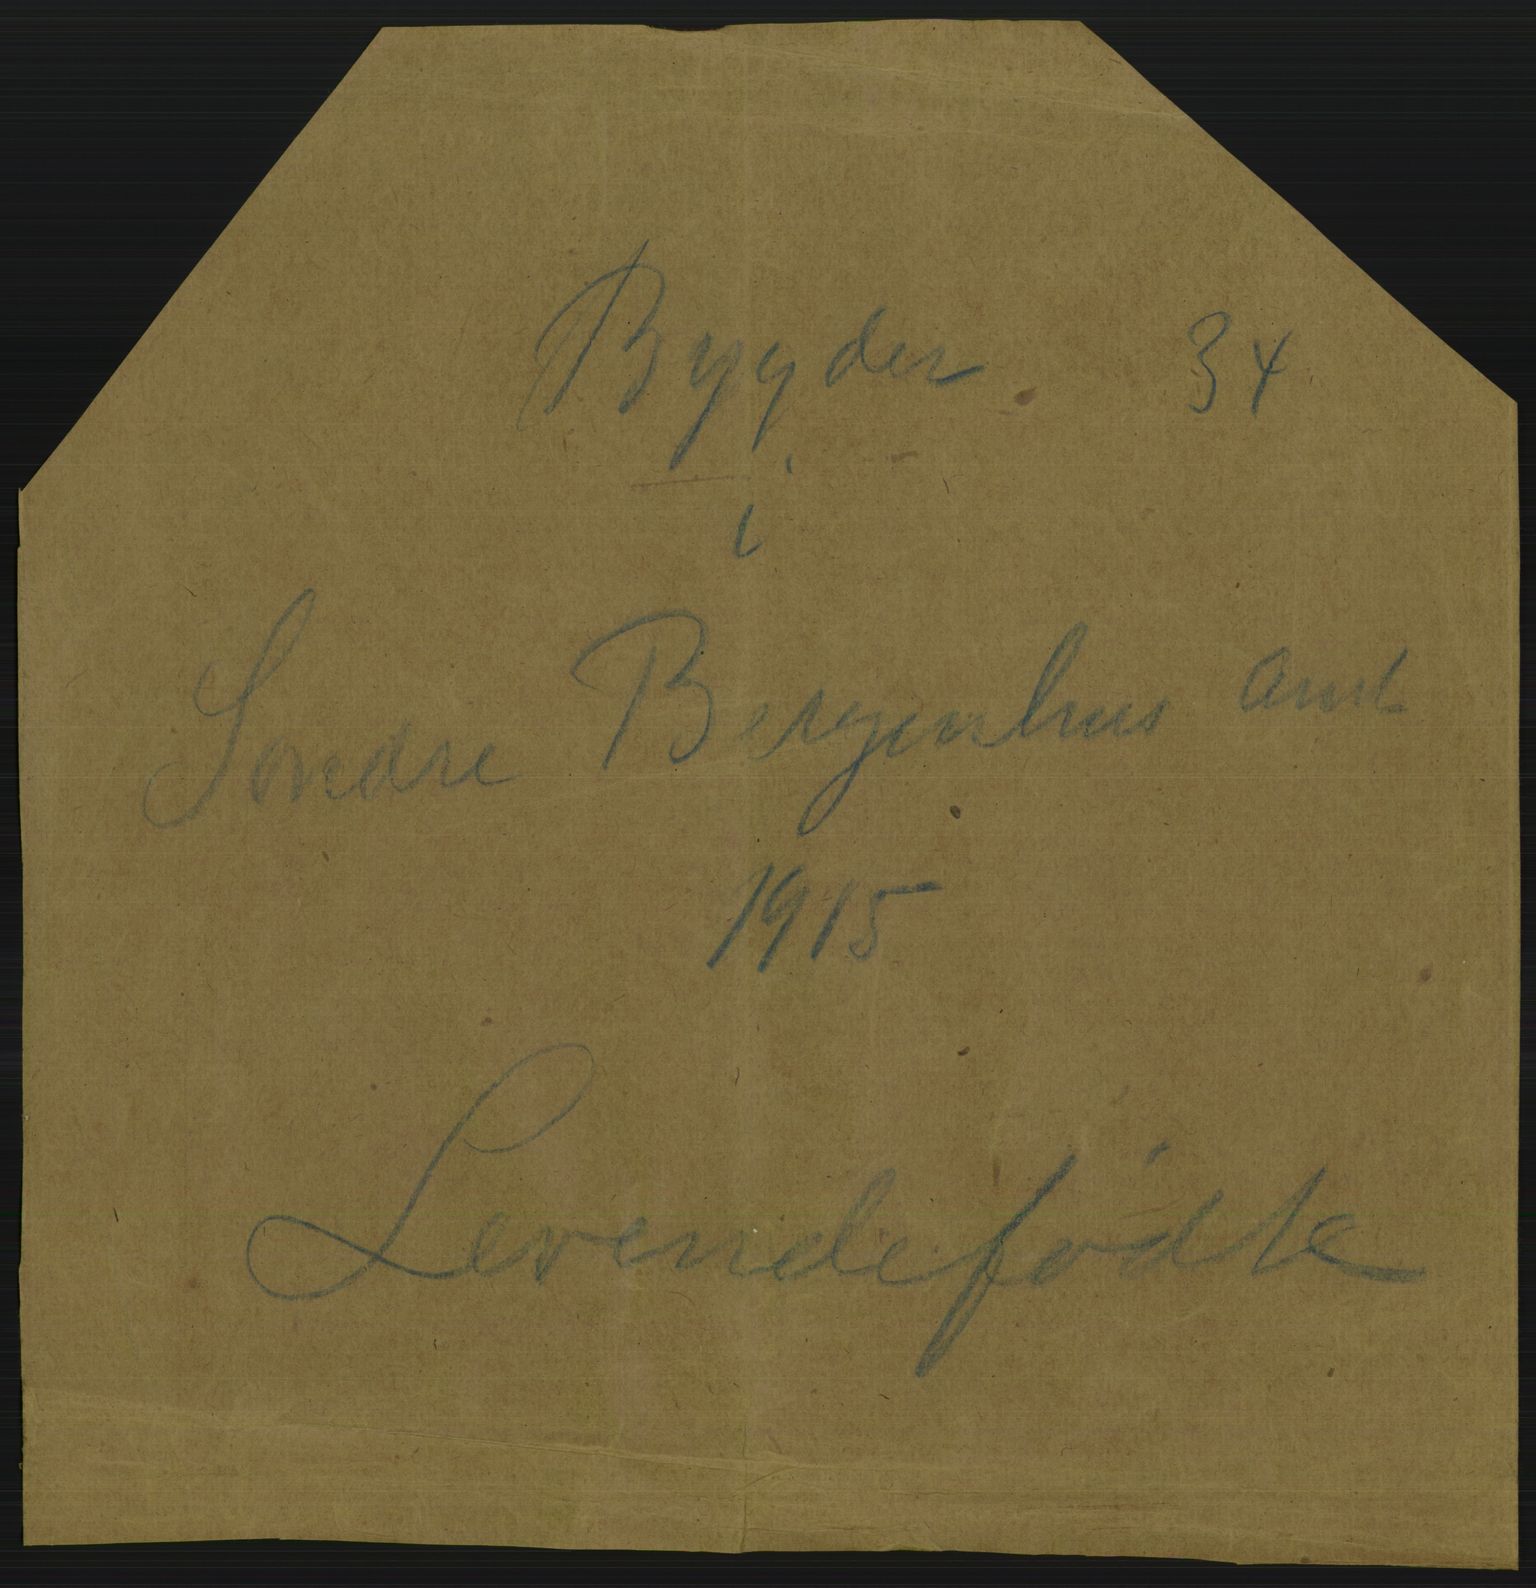 Bygder 34
i
Søndre Bergenhus amt
1915
Levendefødte